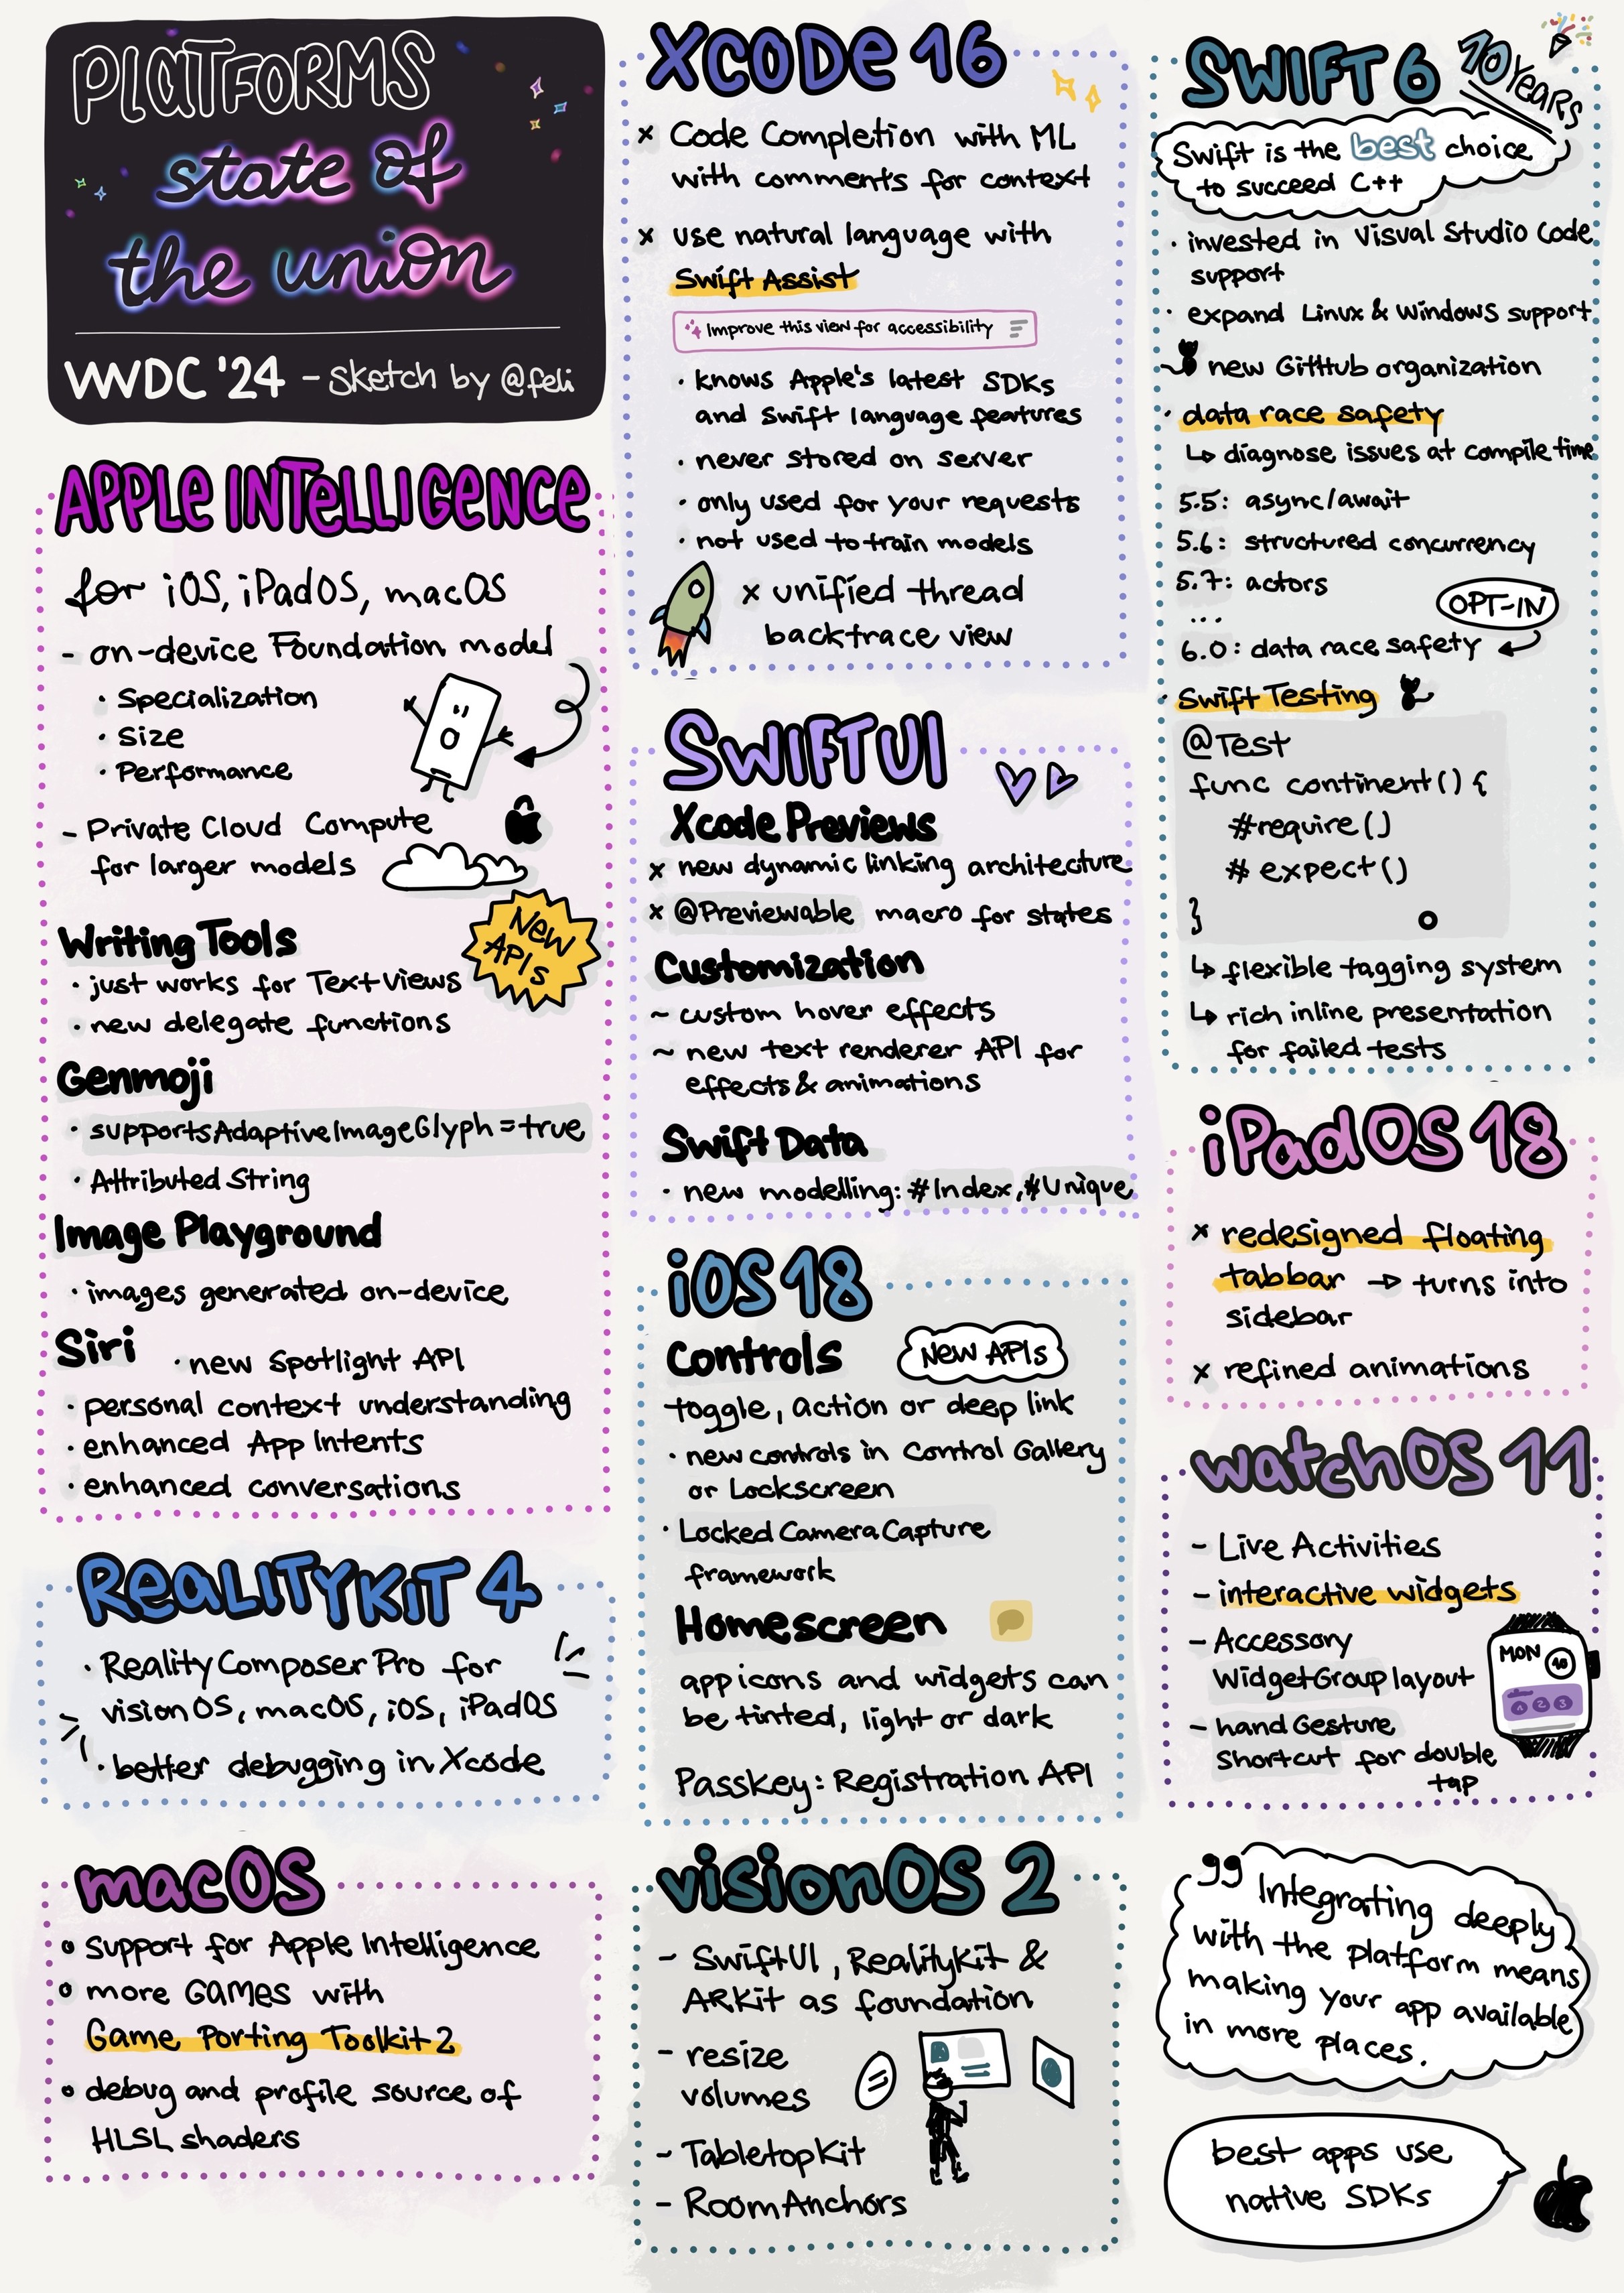 PLATFORMS
state of
the union
WWDC '24 - sketch by @feli
APPLE INTELLIGENCE
for iOS, iPadOS, macOS
- on-device Foundation model
· Specialization
· Size
· Performance
- Private Cloud Compute
for larger models
NEW
APIs
Writing Tools
· just works for TextViews
· new delegate functions
Genmoji
· supportsAdaptiveImageGlyph = true
· Attributed String
Image Playground
· images generated on-device
Siri
· new Spotlight API
· personal context understanding
· enhanced App Intents
· enhanced conversations
REALITYKIT 4
· Reality Composer Pro for
visionOS, macOS, iOS, iPadOS
· better debugging in Xcode
macOS
• support for Apple Intelligence
• more GAMES with
Game Porting Toolkit 2
• debug and profile source of
HLSL shaders
XCODE 16
x Code Completion with ML
with comments for context
x use natural language with
Swift Assist
Improve this view for accessibility
· knows Apple's latest SDKs
and Swift language features
· never stored on server
· only used for your requests
· not used to train models
x unified thread
backtrace view
SWIFTUI
Xcode Previews
x new dynamic linking architecture
x @Previewable macro for states
Customization
~ custom hover effects
~ new text renderer API for
effects & animations
Swift Data
· new modelling: #Index, #Unique
iOS 18
Controls
New APIs
toggle, action or deep link
· new controls in Control Gallery
or Lockscreen
· Locked Camera Capture
framework
Homescreen
app icons and widgets can
be tinted, light or dark
Passkey: Registration API
visionOS 2
- SwiftUI, RealityKit &
ARKit as foundation
- resize
volumes
- TabletopKit
- Room Anchors
SWIFT 6
10 YEARS
Swift is the best choice
to succeed C++
· invested in Visual Studio Code
support
· expand Linux & Windows support
new GitHub organization
· data race safety
↳ diagnose issues at compile time
5.5: async/await
5.6: structured concurrency
5.7: actors
...
OPT-IN
6.0: data race safety
· Swift Testing
@Test
func continent() {
#require()
#expect()
}
↳ flexible tagging system
↳ rich inline presentation
for failed tests
iPadOS 18
x redesigned floating
tabbar → turns into
sidebar
x refined animations
watchOS 11
- Live Activities
- interactive widgets
- Accessory
WidgetGroup layout
- hand Gesture
Shortcut for double
tap
MON 10
1 2 3
99 Integrating deeply
with the platform means
making your app available
in more places.
best apps use
native SDKs